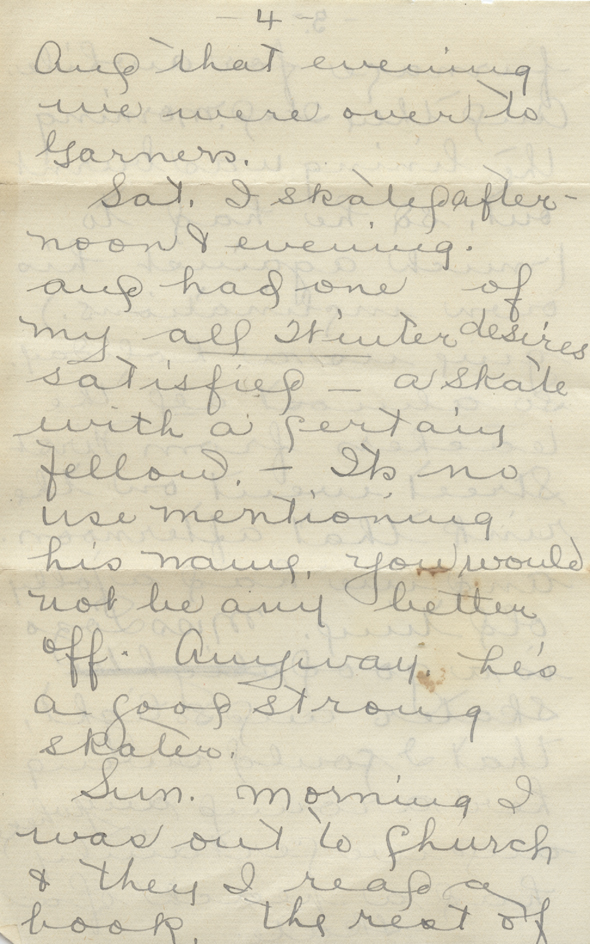 - 4 -
And that evening
we were over to
Garners.
Sat. I skated after-
noon & evening.
and had one of
my all Winter desires
satisfied - a skate
with a certain
fellow. - It's no
use mentioning
his name, you would
not be any better
off. Anyway, he's
a good strong
skater.
Sun. morning I
was out to church
& then I read a
book, the rest of